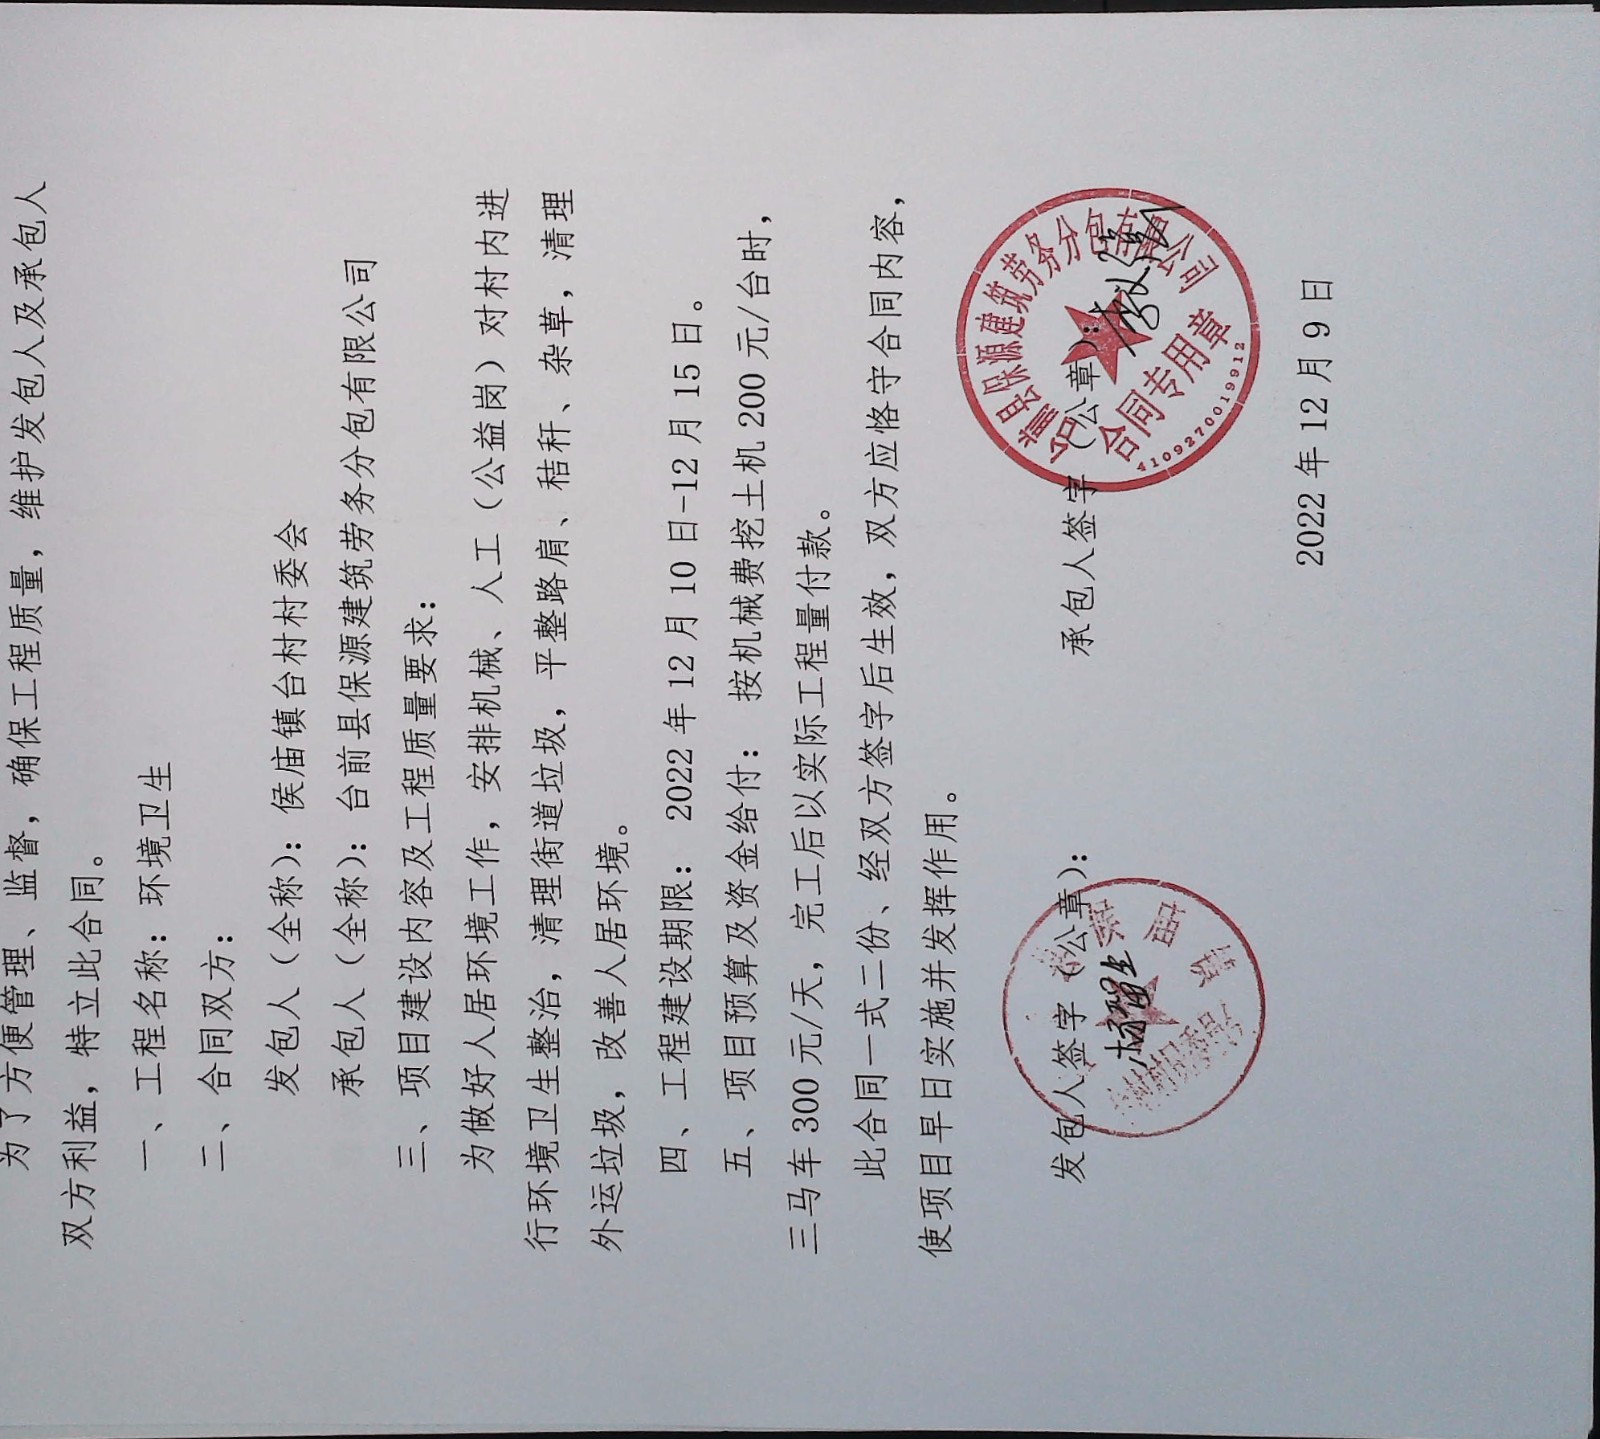 为了方便管理、监督，确保工程质量，维护发包人及承包人
双方利益，特立此合同。
一、工程名称：环境卫生
二、合同双方：
发包人（全称）：侯庙镇台村村委会
承包人（全称）：台前县保源建筑劳务分包有限公司
三、项目建设内容及工程质量要求：
为做好人居环境工作，安排机械、人工（公益岗）对村内进
行环境卫生整治，清理街道垃圾，平整路肩、秸秆、杂草，清理
外运垃圾，改善人居环境。
四、工程建设期限： 2022 年 12 月 10 日-12 月 15 日。
五、项目预算及资金给付： 按机械费挖土机 200 元/台时，
三马车 300 元/天，完工后以实际工程量付款。
此合同一式二份、经双方签字后生效，双方应恪守合同内容，
使项目早日实施并发挥作用。
发包人签字（公章）：
承包人签字（公章）：
台前县保源建筑劳务分包有限公司
合同专用章
4109270019912
2022 年 12 月 9 日